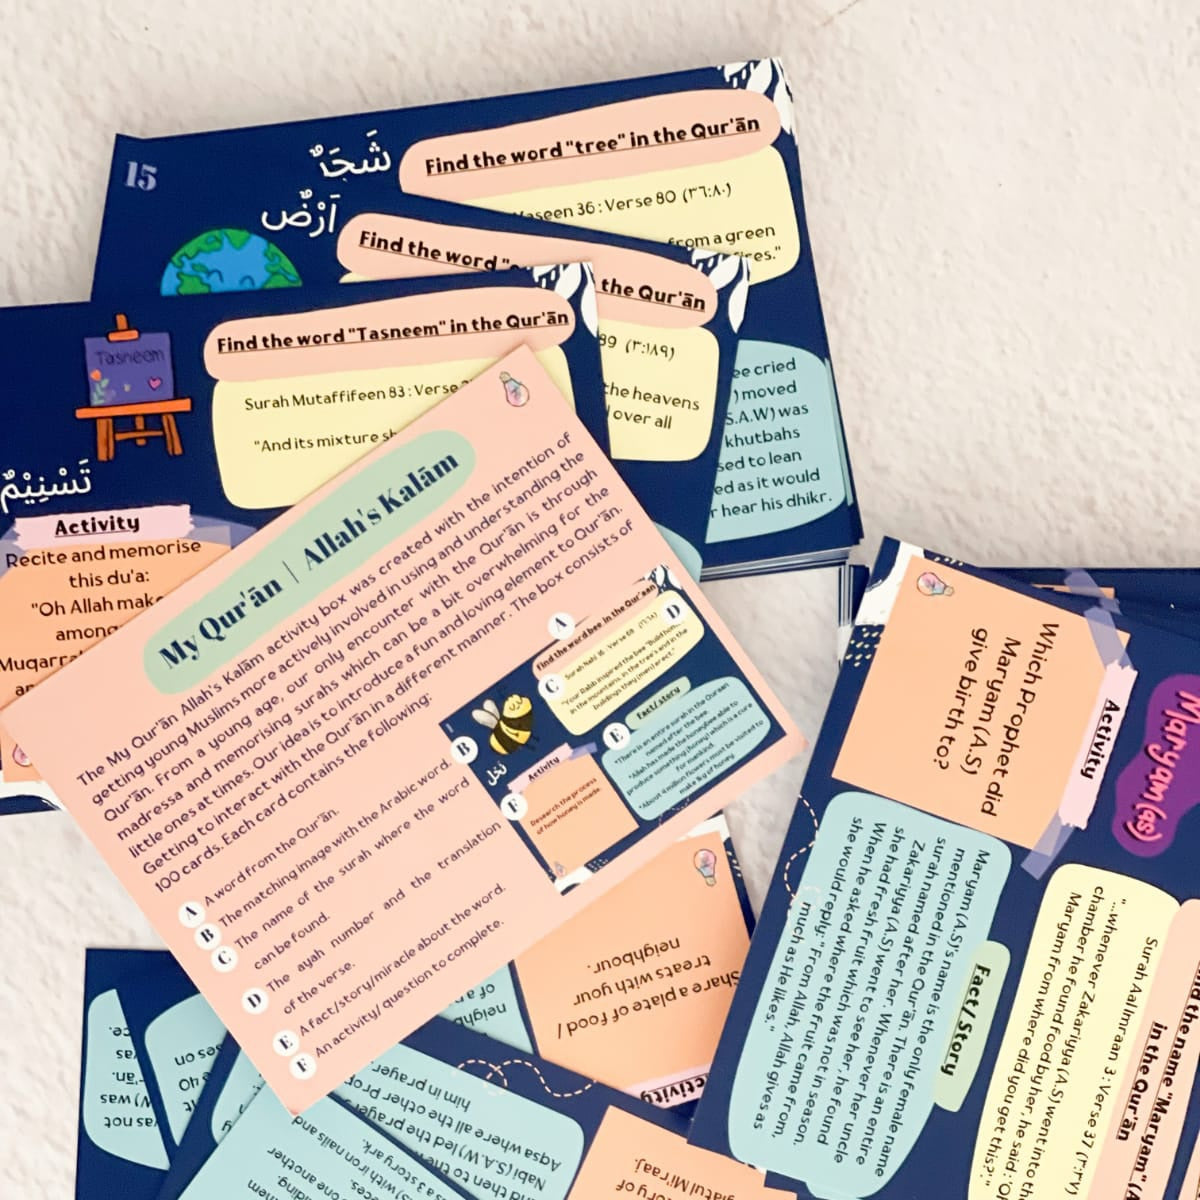 15
شَجَرٌ
Find the word "tree" in the Qur'ān
Yaseen 36 : Verse 80 (٣٦:٨٠)
from a green
أَرْضٌ
Find the word
the Qur'ān
89 (٣:١٨٩)
the heavens
over all
ee cried
) moved
S.A.W) was
khutbahs
sed to lean
ed as it would
r hear his dhikr.
Tasneem
تَسْنِيْمٌ
Find the word "Tasneem" in the Qur'ān
Surah Mutaffifeen 83 : Verse
"And its mixture
Activity
Recite and memorise
this du'a:
"Oh Allah make
among
My Qur'ān | Allah's Kalām
The My Qur'ān Allah's Kalām activity box was created with the intention of
getting young Muslims more actively involved in using and understanding the
Qur'ān. From a young age, our only encounter with the Qur'ān is through
madressa and memorising surahs which can be a bit overwhelming for the
little ones at times. Our idea is to introduce a fun and loving element to Qur'ān.
Getting to interact with the Qur'ān in a different manner. The box consists of
100 cards. Each card contains the following:
A A word from the Qur'ān.
B The matching image with the Arabic word.
C The name of the surah where the word
can be found.
D The ayah number and the translation
of the verse.
E A fact/story/miracle about the word.
F An activity/ question to complete.
A
Find the word bee in the Qur'aan
D
C
Surah Nahl 16 : Verse 68
"Your Rabb inspired the bee "Build homes
in the mountains, in the trees and in the
buildings they (men) erect."
B
نَحْل
E
Fact/story
"There is an entire surah in the Quraan
named after the bee.
"Allah has made the honeybee able to
produce something (honey) which is a cure
for mankind.
"About 4 million flowers must be visited to
make 1kg of honey
F
Activity
Research the process
of how honey is made.
Maryam (as)
Activity
Which Prophet did
Maryam (A.S)
give birth to?
the name "Maryam"
in the Qur'ān
Surah Aal Imraan 3 : Verse 37 (٣:٣٧)
"...whenever Zakariyya (A.S) went into th
chamber he found food by her, he said: 'O
Maryam from where did you get this?'."
Fact/Story
Maryam (A.S)'s name is the only female name
mentioned in the Qur'ān. There is an entire
surah named after her. Whenever her uncle
Zakariyya (A.S) went to see her, he found
she had fresh fruit which was not in season.
When he asked where the fruit came from,
she would reply: "From Allah, Allah gives as
much as He likes."
Activity
Share a plate of food /
treats with your
neighbour.
neighb
of a
Nabi (S.A.W) led the prayer
Aqsa where all the other Pro
him in prayer